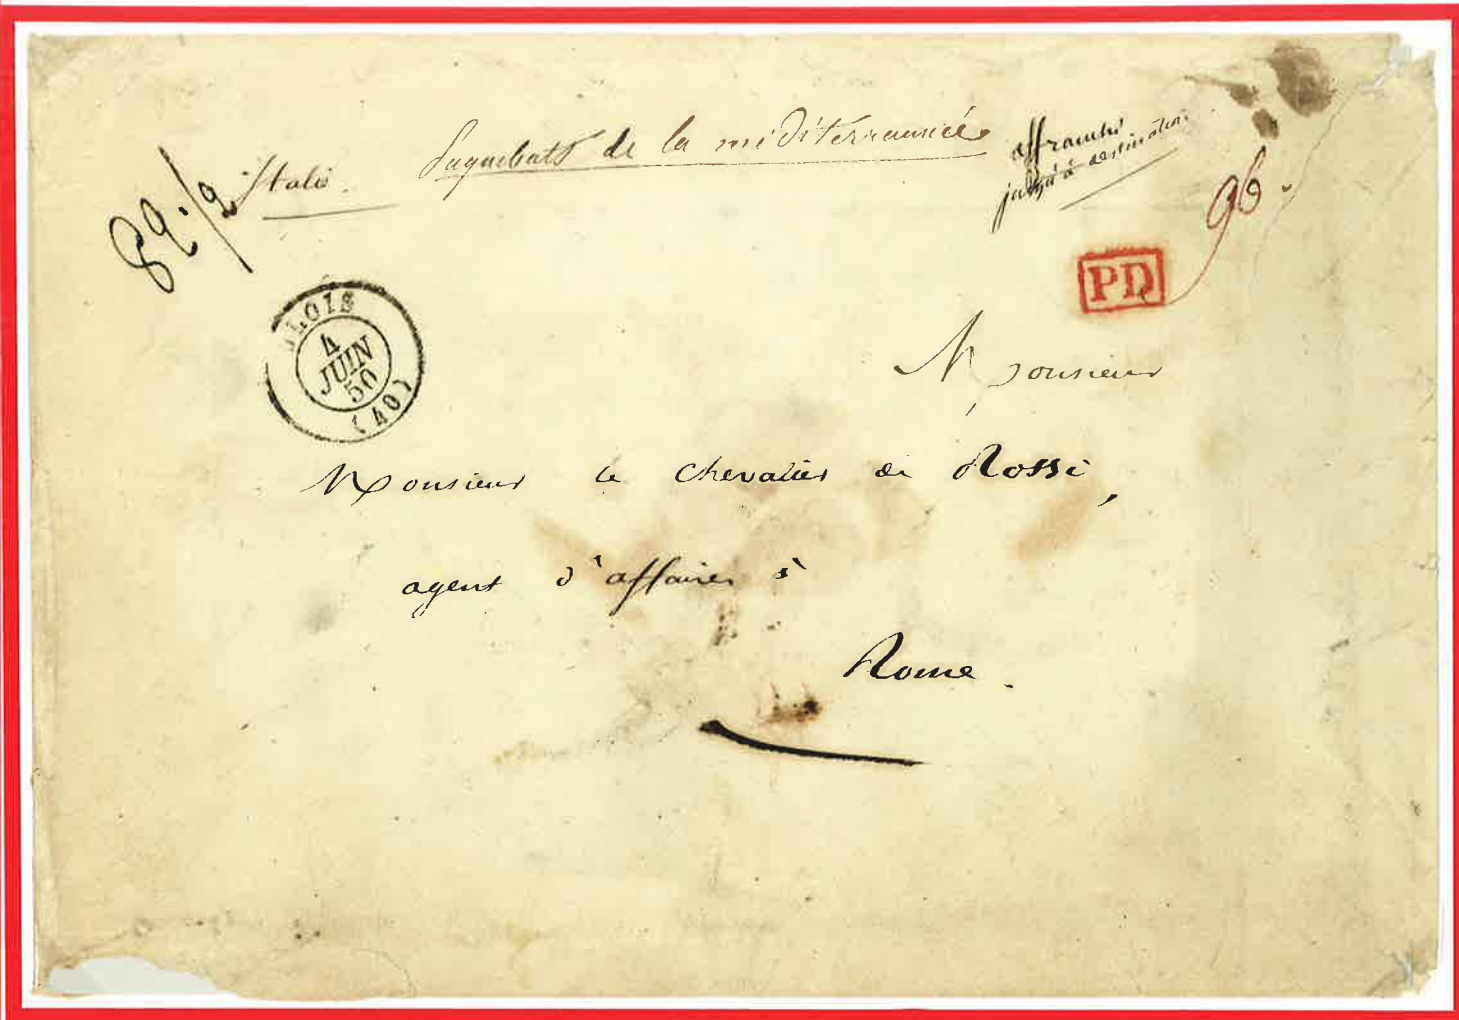 Paquebots de la méditerrannée
affranchi
jusqu'à destination
Italie.
82./2
96.
PD
BLOIS
4
JUIN
50
(40)
Monsieur
Monsieur le chevalier de Rossi,
agent d'affaires à
Rome.